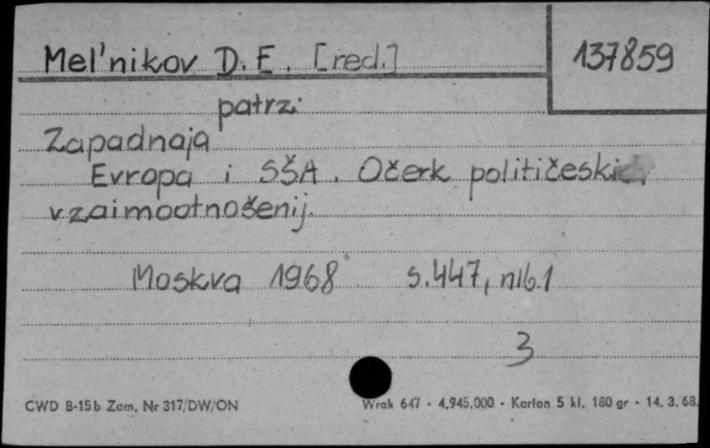 Mel'nikov D. E. [red.]
137859
patrz:
Zapadnaja
Evropa i SŠA. Očerk političeskich
vzaimootnošenij.
Moskva 1968 s. 447, nlb. 1
3
CWD B-15b Zam. Nr 317/DW/ON
Wrak 647 - 4.945.000 - Karton 5 kl. 180 gr - 14. 3. 68.